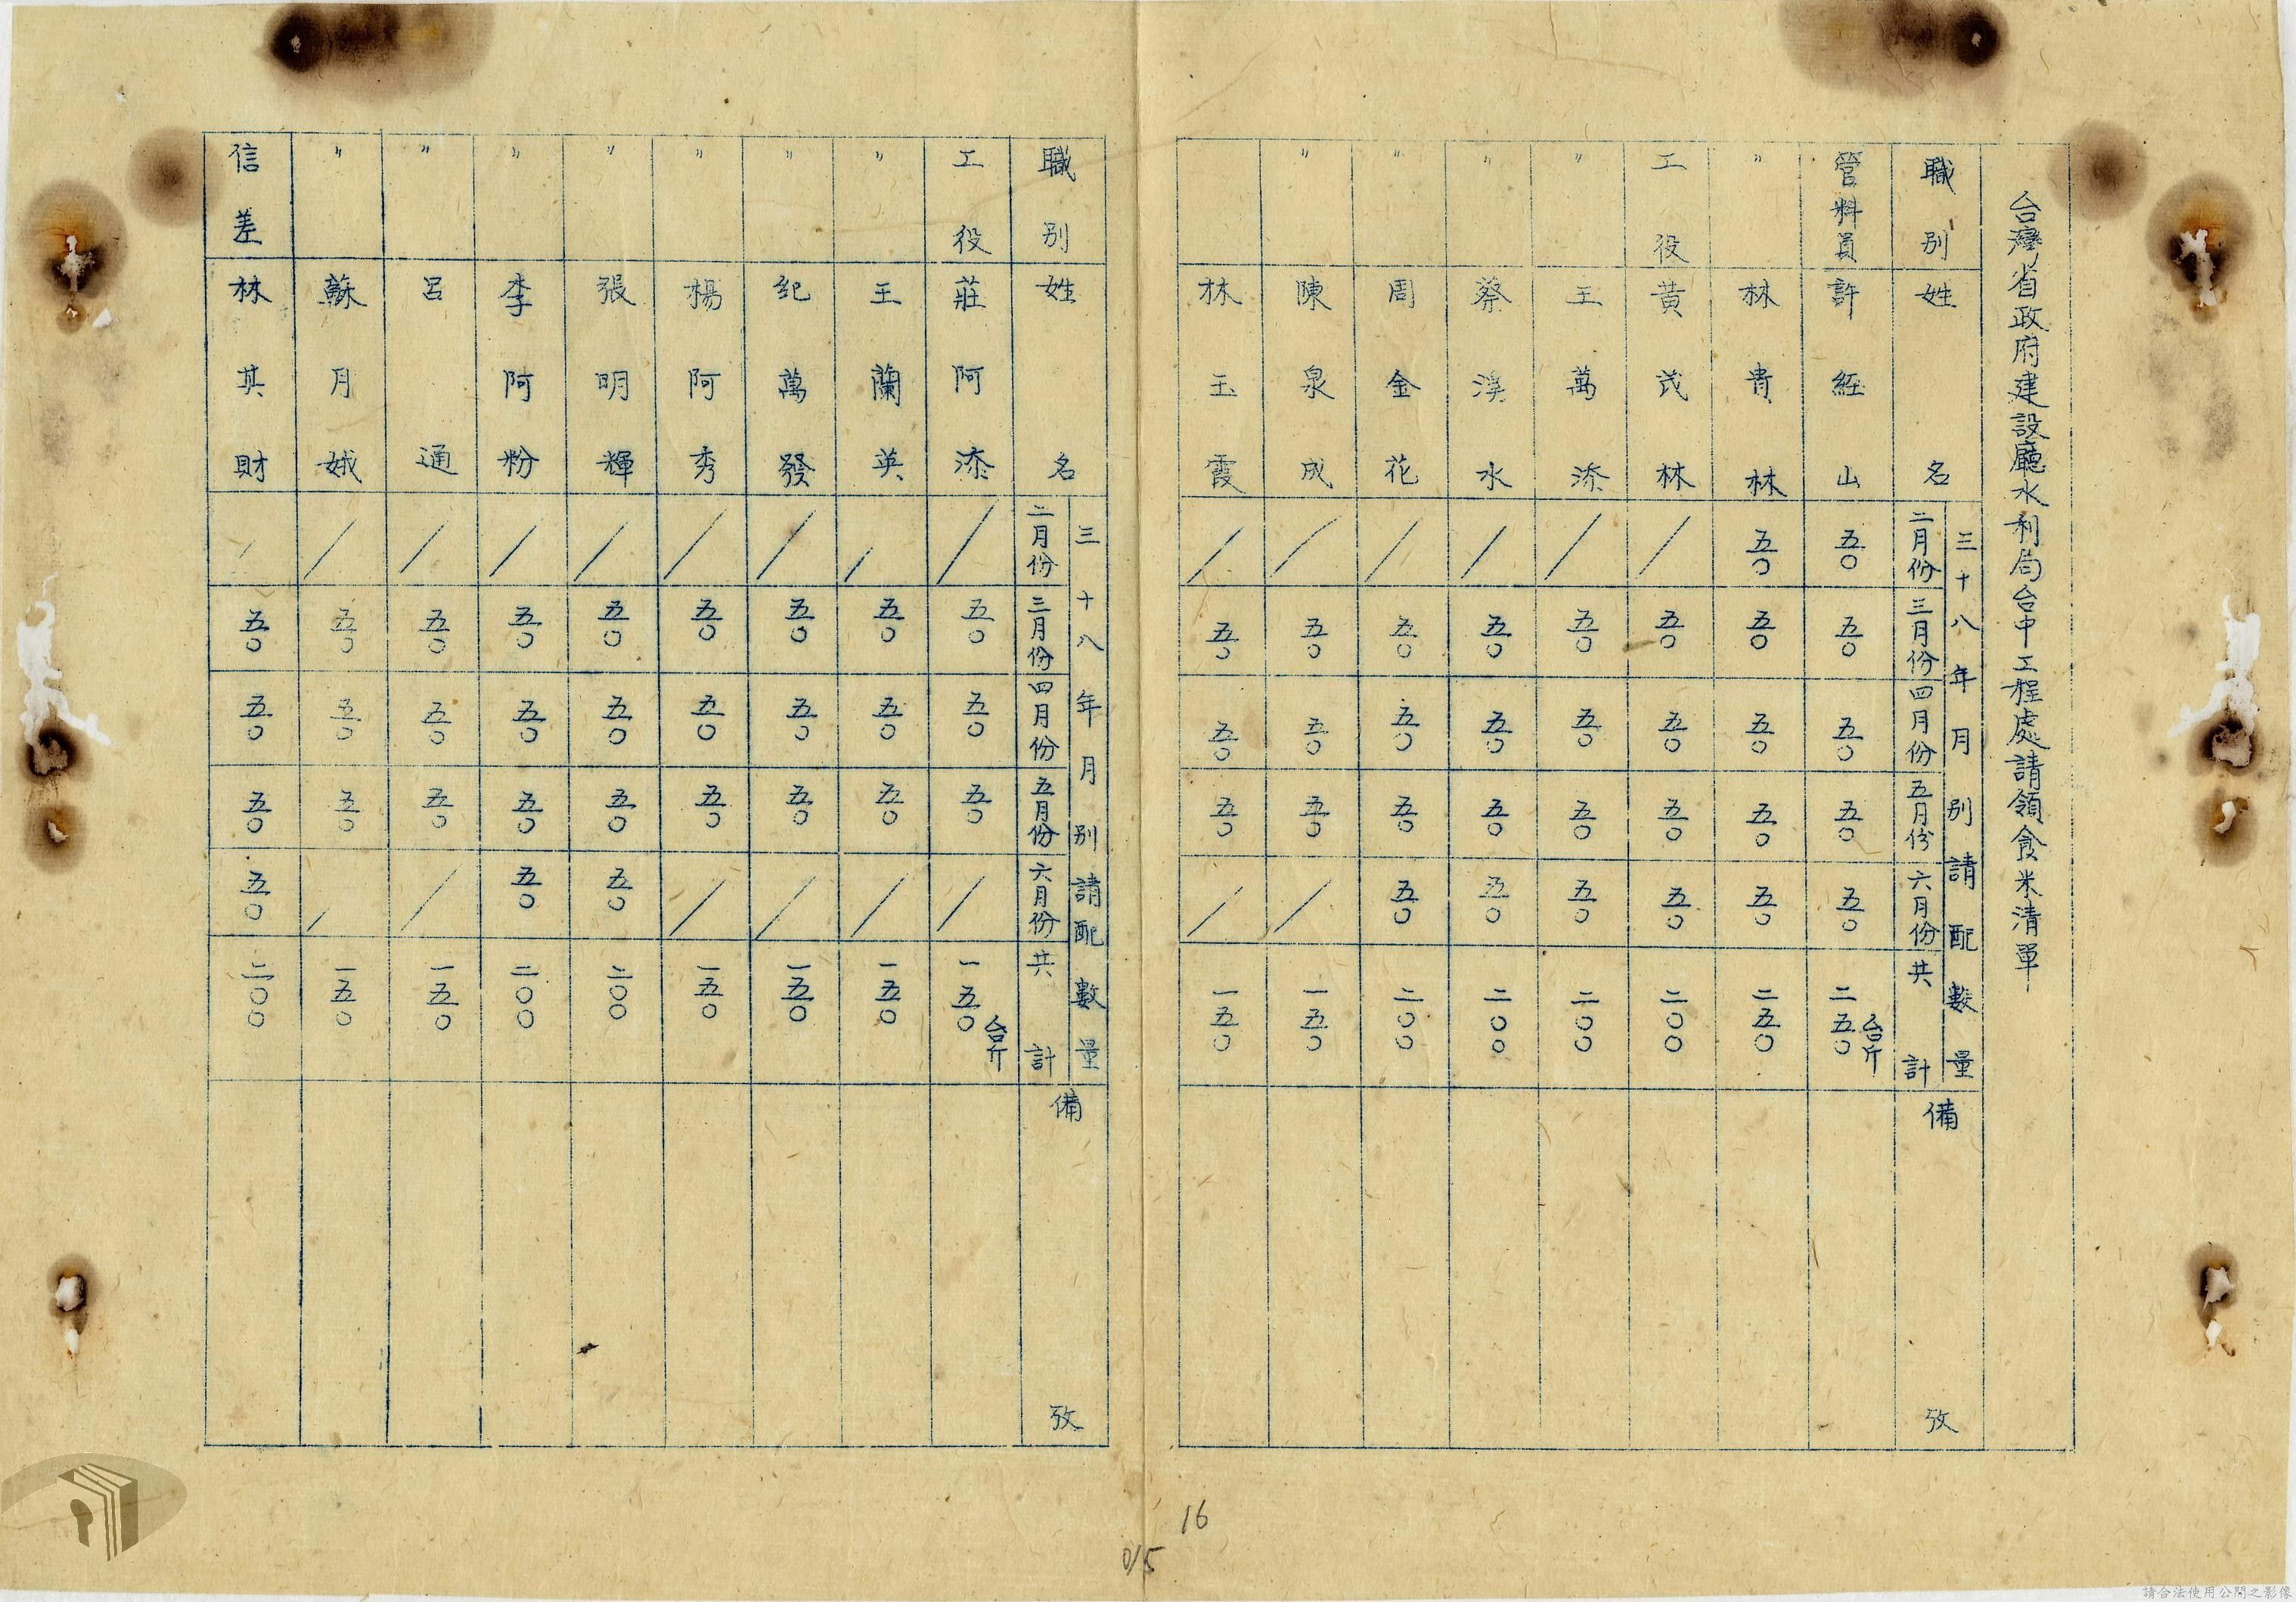 台灣省政府建設廳水利局台中工程處請領食米清單
職別 姓名 三十八年月別請配數量 二月份 三月份 四月份 五月份 六月份 共計 備攷
管料員 許經山 五〇 五〇 五〇 五〇 五〇 二五〇台斤
〃 林貴林 五〇 五〇 五〇 五〇 五〇 二五〇
工役 黃茂林 / 五〇 五〇 五〇 五〇 二〇〇
〃 王萬添 / 五〇 五〇 五〇 五〇 二〇〇
〃 蔡溪水 / 五〇 五〇 五〇 五〇 二〇〇
〃 周金花 / 五〇 五〇 五〇 五〇 二〇〇
〃 陳泉成 / 五〇 五〇 五〇 / 一五〇
林玉霞 / 五〇 五〇 五〇 / 一五〇
職別 姓名 三十八年月別請配數量 二月份 三月份 四月份 五月份 六月份 共計 備攷
工役 莊阿添 / 五〇 五〇 五〇 / 一五〇台斤
〃 王蘭英 / 五〇 五〇 五〇 / 一五〇
〃 紀萬發 / 五〇 五〇 五〇 / 一五〇
〃 楊阿秀 / 五〇 五〇 五〇 / 一五〇
〃 張明輝 / 五〇 五〇 五〇 五〇 二〇〇
〃 李阿粉 / 五〇 五〇 五〇 五〇 二〇〇
〃 呂通 / 五〇 五〇 五〇 / 一五〇
〃 蘇月娥 / 五〇 五〇 五〇 / 一五〇
信差 林其財 / 五〇 五〇 五〇 五〇 二〇〇
16
015
請合法使用公開之影像